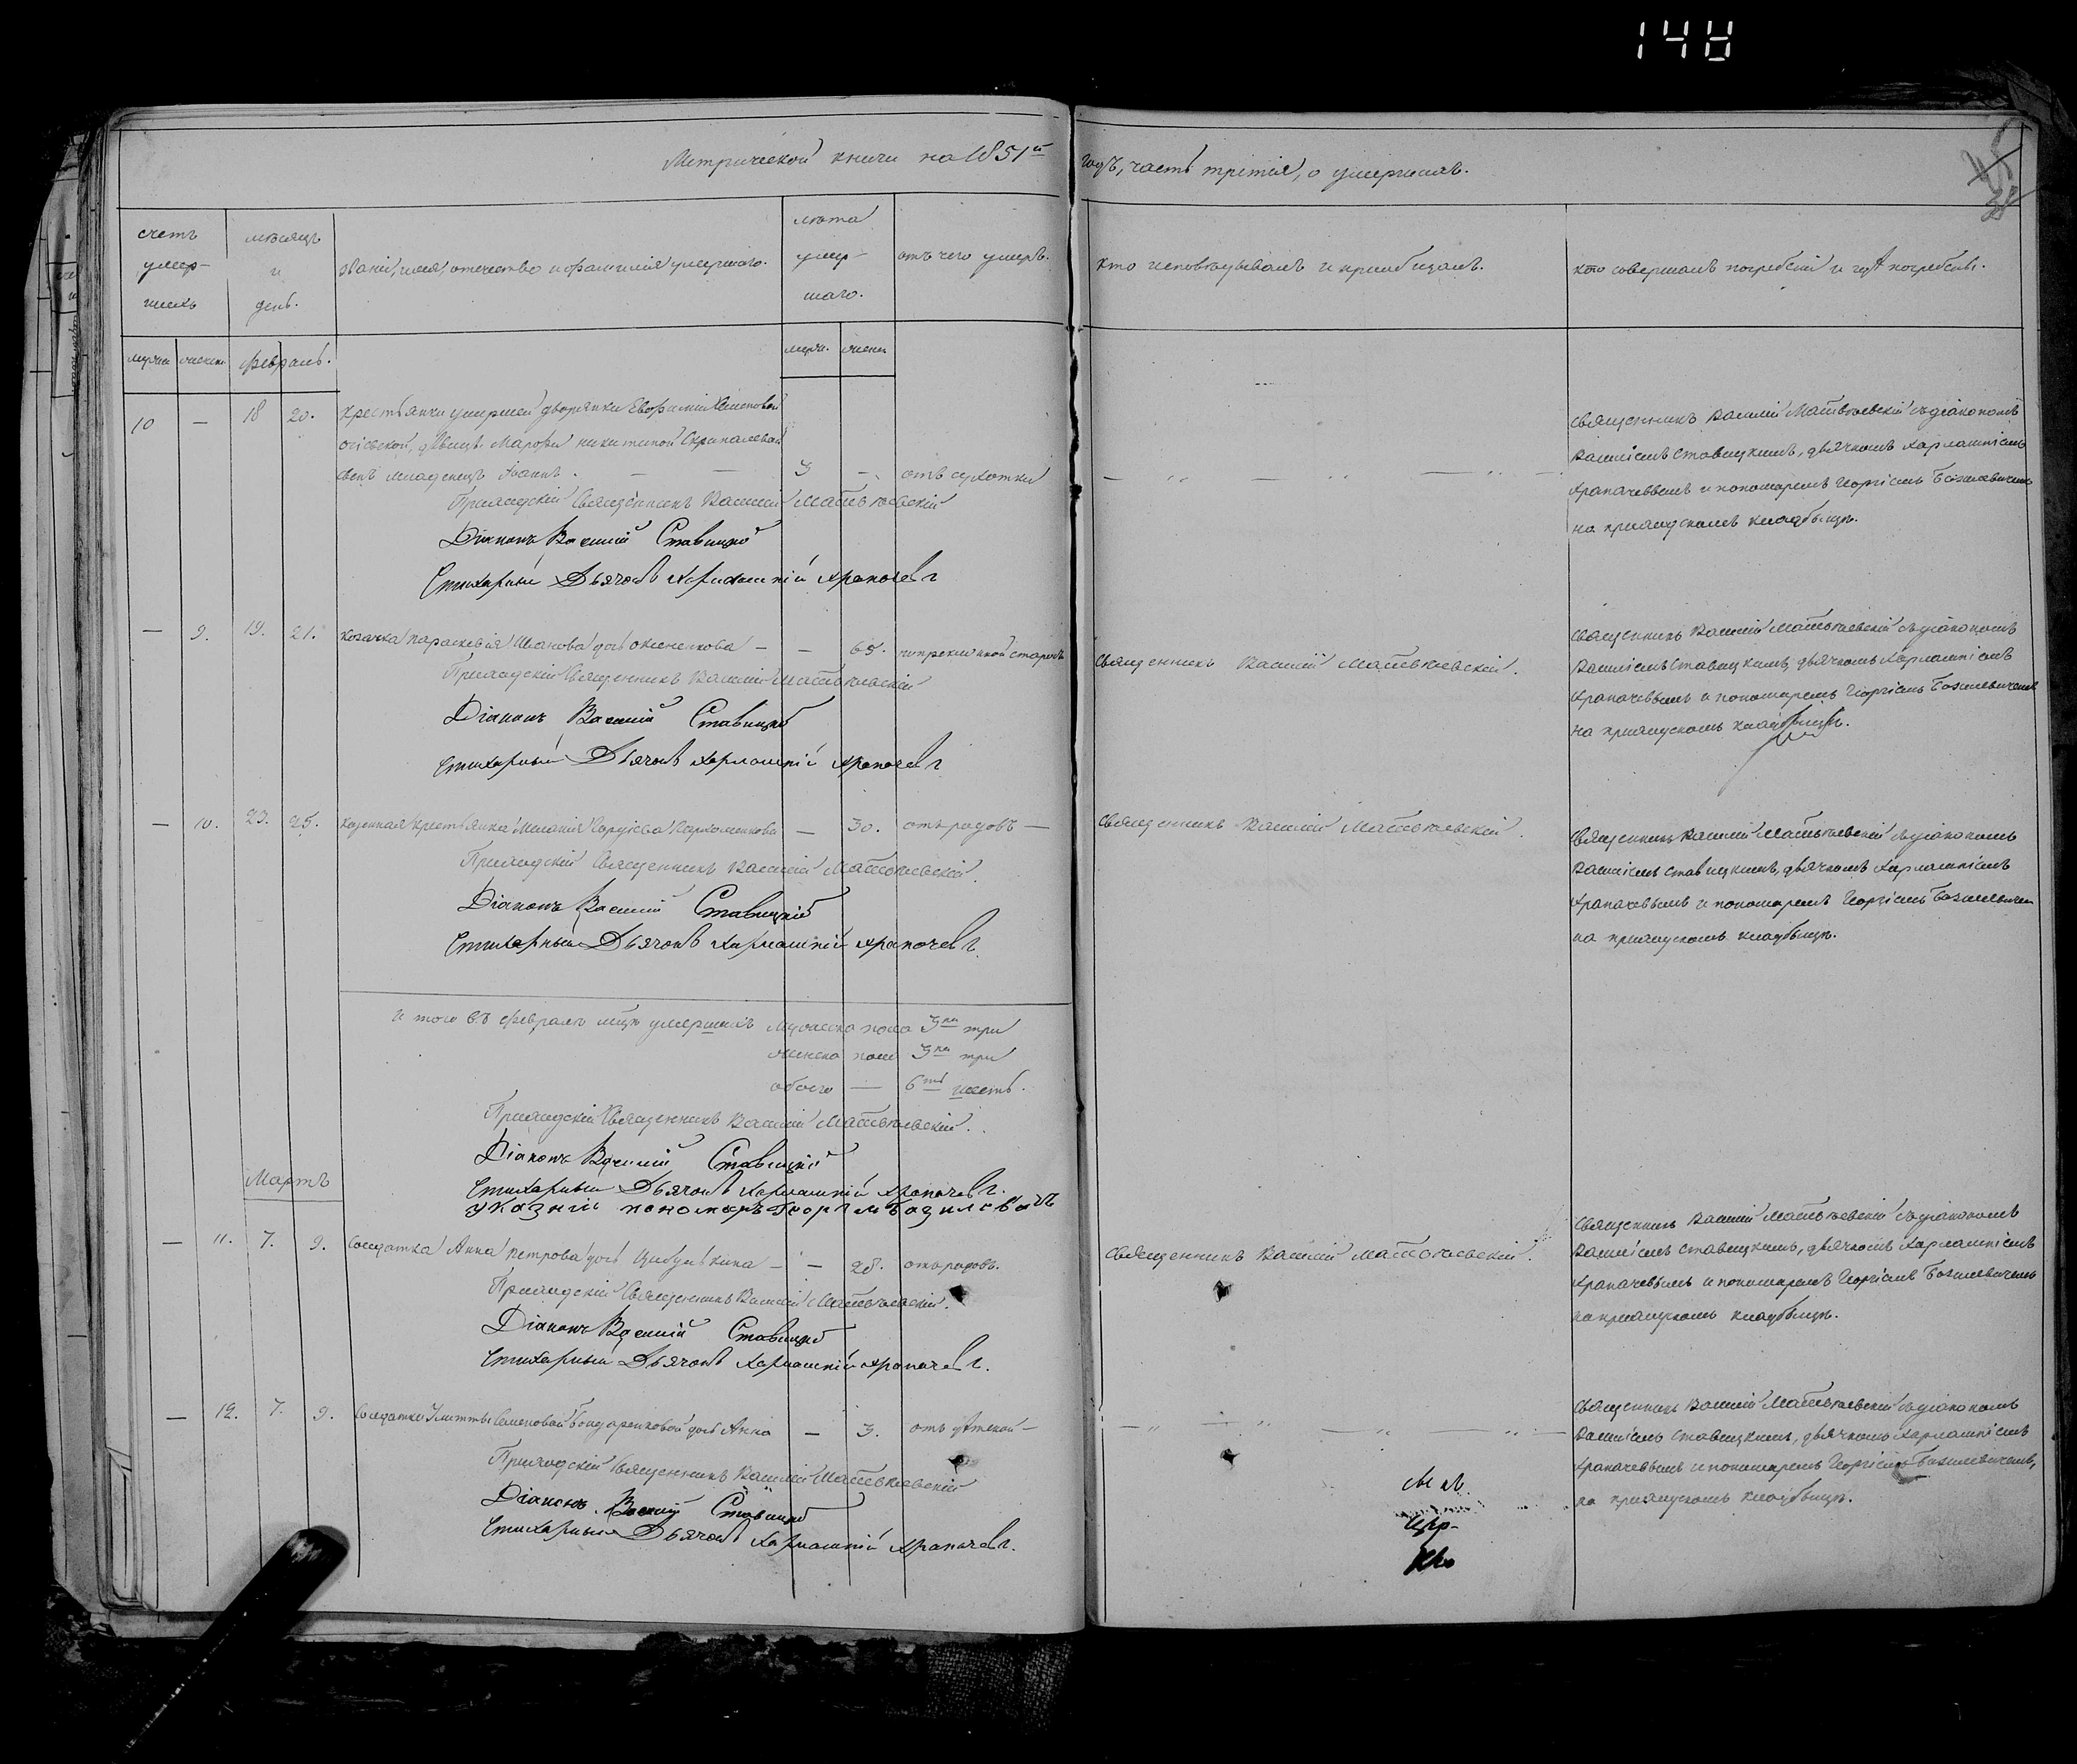 148
Метрической книги на 1851й годъ, часть третія, о умершихъ.
счетъ умер-шихъ
мѣсяцъ и день.
званіе, имя, отечество и фамилія умершаго.
лѣта умер-шаго.
отъ чего умеръ.
кто исповѣдывалъ и пріобщалъ.
кто совершалъ погребеніе и гдѣ погребенъ.
мужска женска Февраль. мужи. женск
10 — 18 20. Крестьянки умершей дворянки Евфиміи Семеновой
дѣвицы Марфы Никитиной Скрипалевой
сынъ младенецъ Іоаннъ. — — 3 — отъ сухотки
Приходскій Священникъ Василій Матвѣевскій
Діаконъ Василій Ставицкій
Стихарный Дьячокъ Харлампій Храпачевъ
Священникъ Василій Матвѣевскій съ діакономъ
Василіемъ Ставицкимъ, дьячкомъ Харлампіемъ
Храпачевымъ и пономаремъ Георгіемъ Базилевичемъ
на приходскомъ кладбищѣ.
— 9. 19. 21. Козачка Параскевія Иванова дочь — — 65. старости
Приходскій Священникъ Василій Матвѣевскій
Діаконъ Василій Ставицкій
Стихарный Дьячокъ Харлампій Храпачевъ
Священникъ Василій Матвѣевскій.
Священникъ Василій Матвѣевскій съ діакономъ
Василіемъ Ставицкимъ, дьячкомъ Харлампіемъ
Храпачевымъ и пономаремъ Георгіемъ Базилевичемъ
на приходскомъ кладбищѣ.
— 10. 23. 25. Казенная крестьянка Меланія Гордіева Пархоменкова — 30. отъ родовъ —
Приходскій Священникъ Василій Матвѣевскій.
Діаконъ Василій Ставицкій
Стихарный Дьячокъ Харлампій Храпачевъ.
Священникъ Василій Матвѣевскій.
Священникъ Василій Матвѣевскій съ діакономъ
Василіемъ Ставицкимъ, дьячкомъ Харлампіемъ
Храпачевымъ и пономаремъ Георгіемъ Базилевичемъ
на приходскомъ кладбищѣ.
и того въ Февралѣ мцѣ умершихъ мужеска пола 3ри три
женска пола 3ри три
обоего — 6ть шесть.
Приходскій Священникъ Василій Матвѣевскій.
Діаконъ Василій Ставицкій
Стихарный Дьячокъ Харлампій Храпачевъ.
указній пономаръ Георгій Базилевичъ
Мартъ
— 11. 7. 9. Солдатка Анна Петрова дочь Цибулькина — — 28. отъ родовъ.
Приходскій Священникъ Василій Матвѣевскій.
Діаконъ Василій Ставицкій
Стихарный Дьячокъ Харлампій Храпачевъ.
Священникъ Василій Матвѣевскій.
Священникъ Василій Матвѣевскій съ діакономъ
Василіемъ Ставицкимъ, дьячкомъ Харлампіемъ
Храпачевымъ и пономаремъ Георгіемъ Базилевичемъ
на приходскомъ кладбищѣ.
— 12. 7. 9. Солдатки Улиты Семеновой Бондаренковой дочь Анна — 3. отъ
Приходскій Священникъ Василій Матвѣевскій
Діаконъ Василій Ставицкій
Стихарный Дьячокъ Харлампій Храпачевъ.
Священникъ Василій Матвѣевскій съ діакономъ
Василіемъ Ставицкимъ, дьячкомъ Харлампіемъ
Храпачевымъ и пономаремъ Георгіемъ Базилевичемъ,
на приходскомъ кладбищѣ.